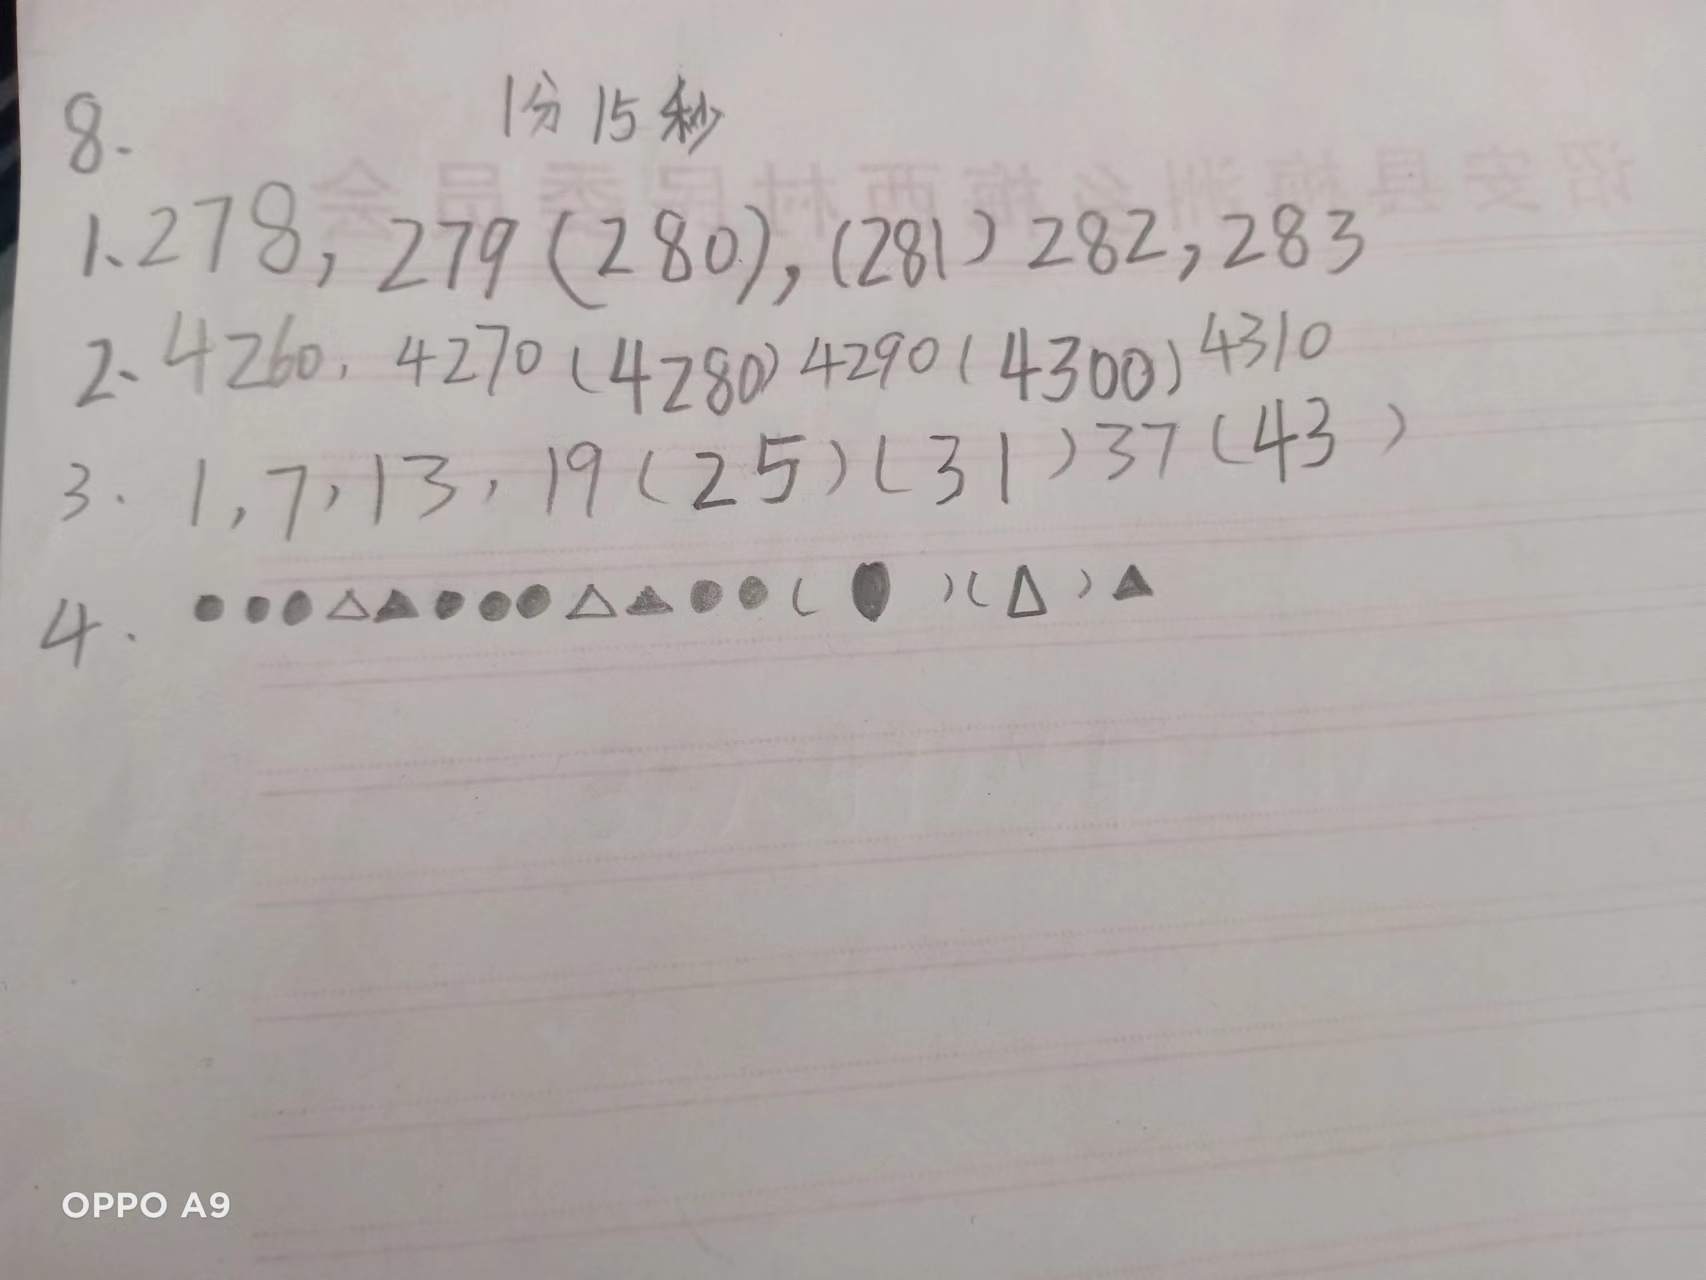 8.
1分15秒
1、278, 279(280),(281)282,283
2、4260, 4270(4280)4290(4300)4310
3. 1,7,13,19(25)(31)37(43)
4. ●●●△▲●●●△▲●●(●)(△)▲
诏安县梅洲乡梅西村民委员会
OPPO A9